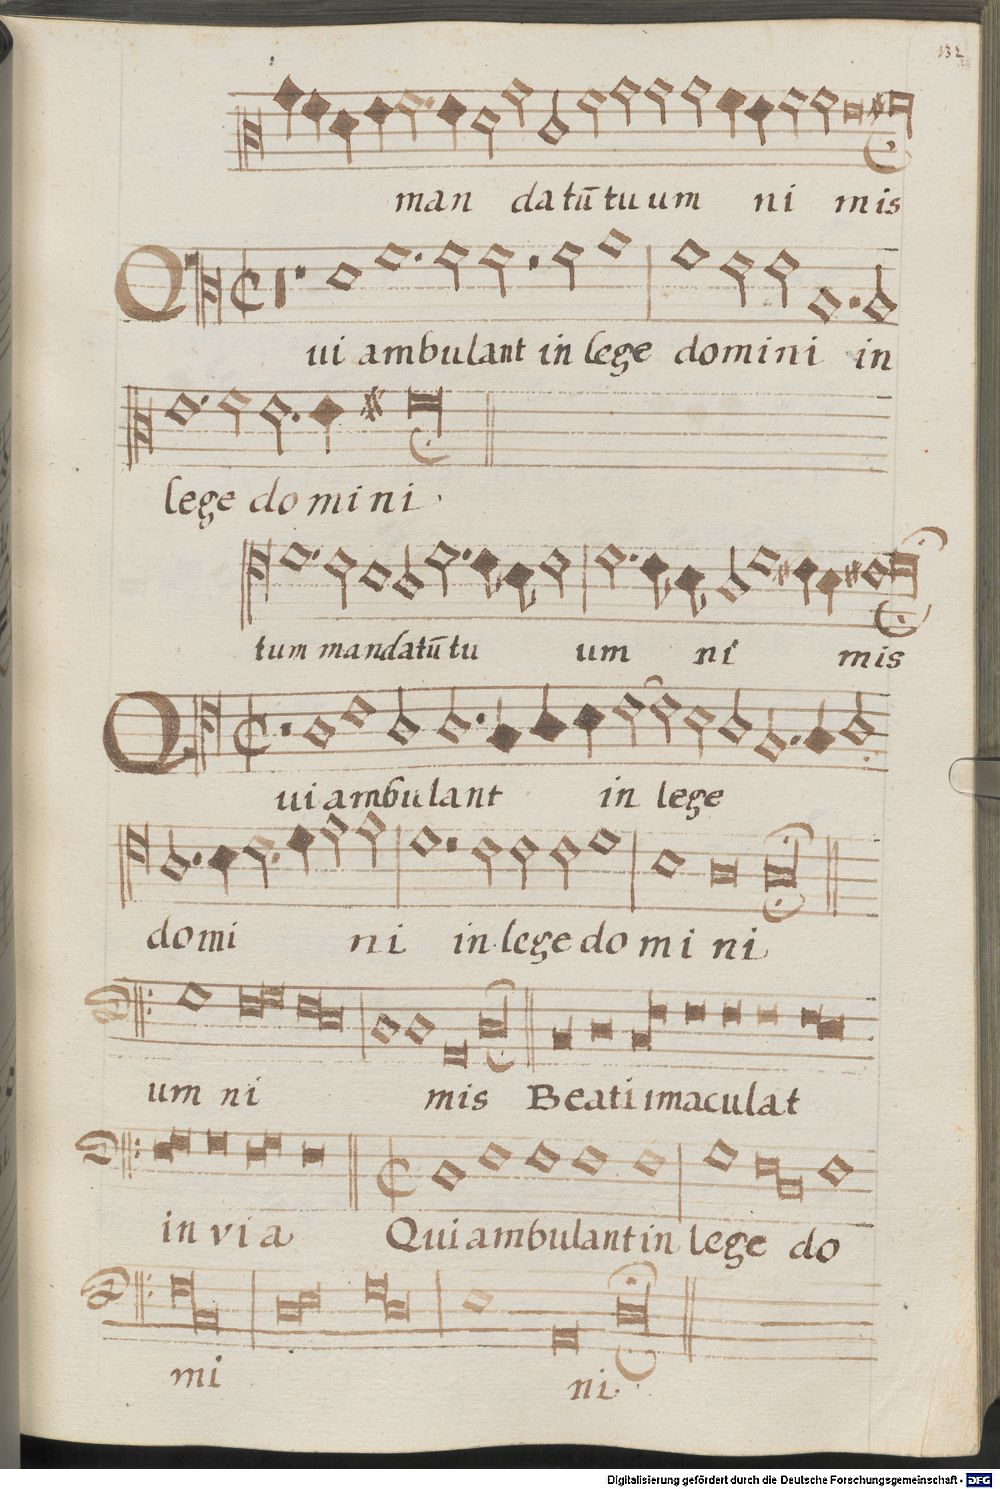 132
man datū tu um ni mis
Qui ambulant in lege domini in
lege domini.
tum mandatū tu um ni mis
Qui ambulant in lege
domi ni in lege domini
um ni mis Beati imaculat
in via Qui ambulant in lege do
mi ni.
Digitalisierung gefördert durch die Deutsche Forschungsgemeinschaft - DFG